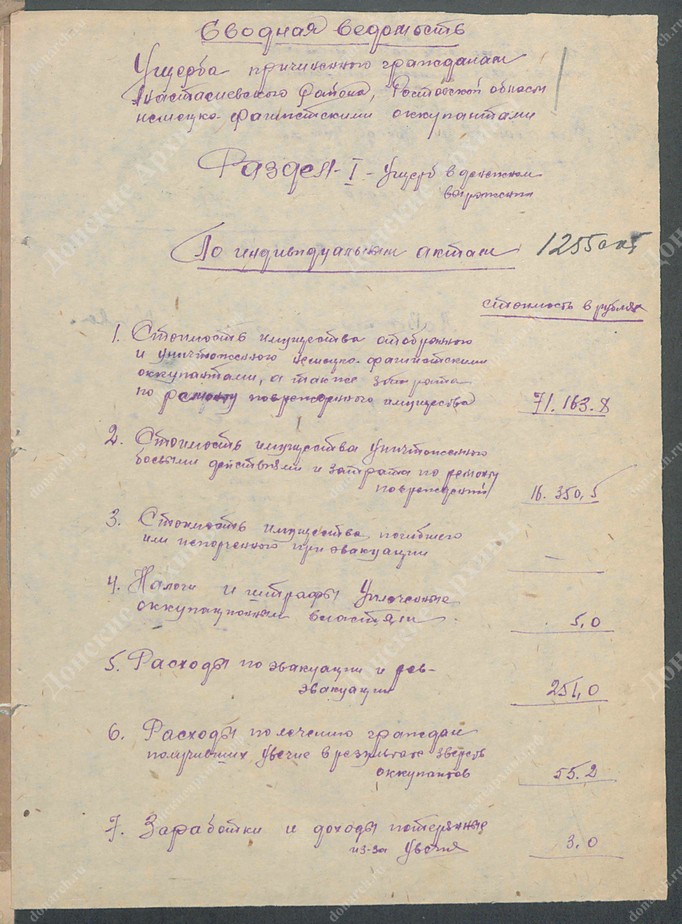 Сводная ведомость
Ущерба причиненного гражданам
Анастасиевского района, Ростовской области
немецко-фашистскими оккупантами
Раздел-I - Ущерб в денежном
выражении
По индивидуальным актам 1255
стоимость в рублях
1. Стоимость имущества отобранного
и уничтоженного немецко-фашистскими
оккупантами, а также затрата
по ремонту поврежденного имущества 71.163.8
2. Стоимость имущества уничтоженного
боевыми действиями и затрата по ремонту
повреждений 16.350,5
3. Стоимость имущества погибшего
или испорченного при эвакуации —
4. Налоги и штрафы уплаченные
оккупационным властям 5,0
5. Расходы по эвакуации и рев-
эвакуации 251,0
6. Расходы по лечению граждан
получивших увечие в результате зверств
оккупантов 55.2
7. Заработки и доходы потерянные
из-за увечия 3,0